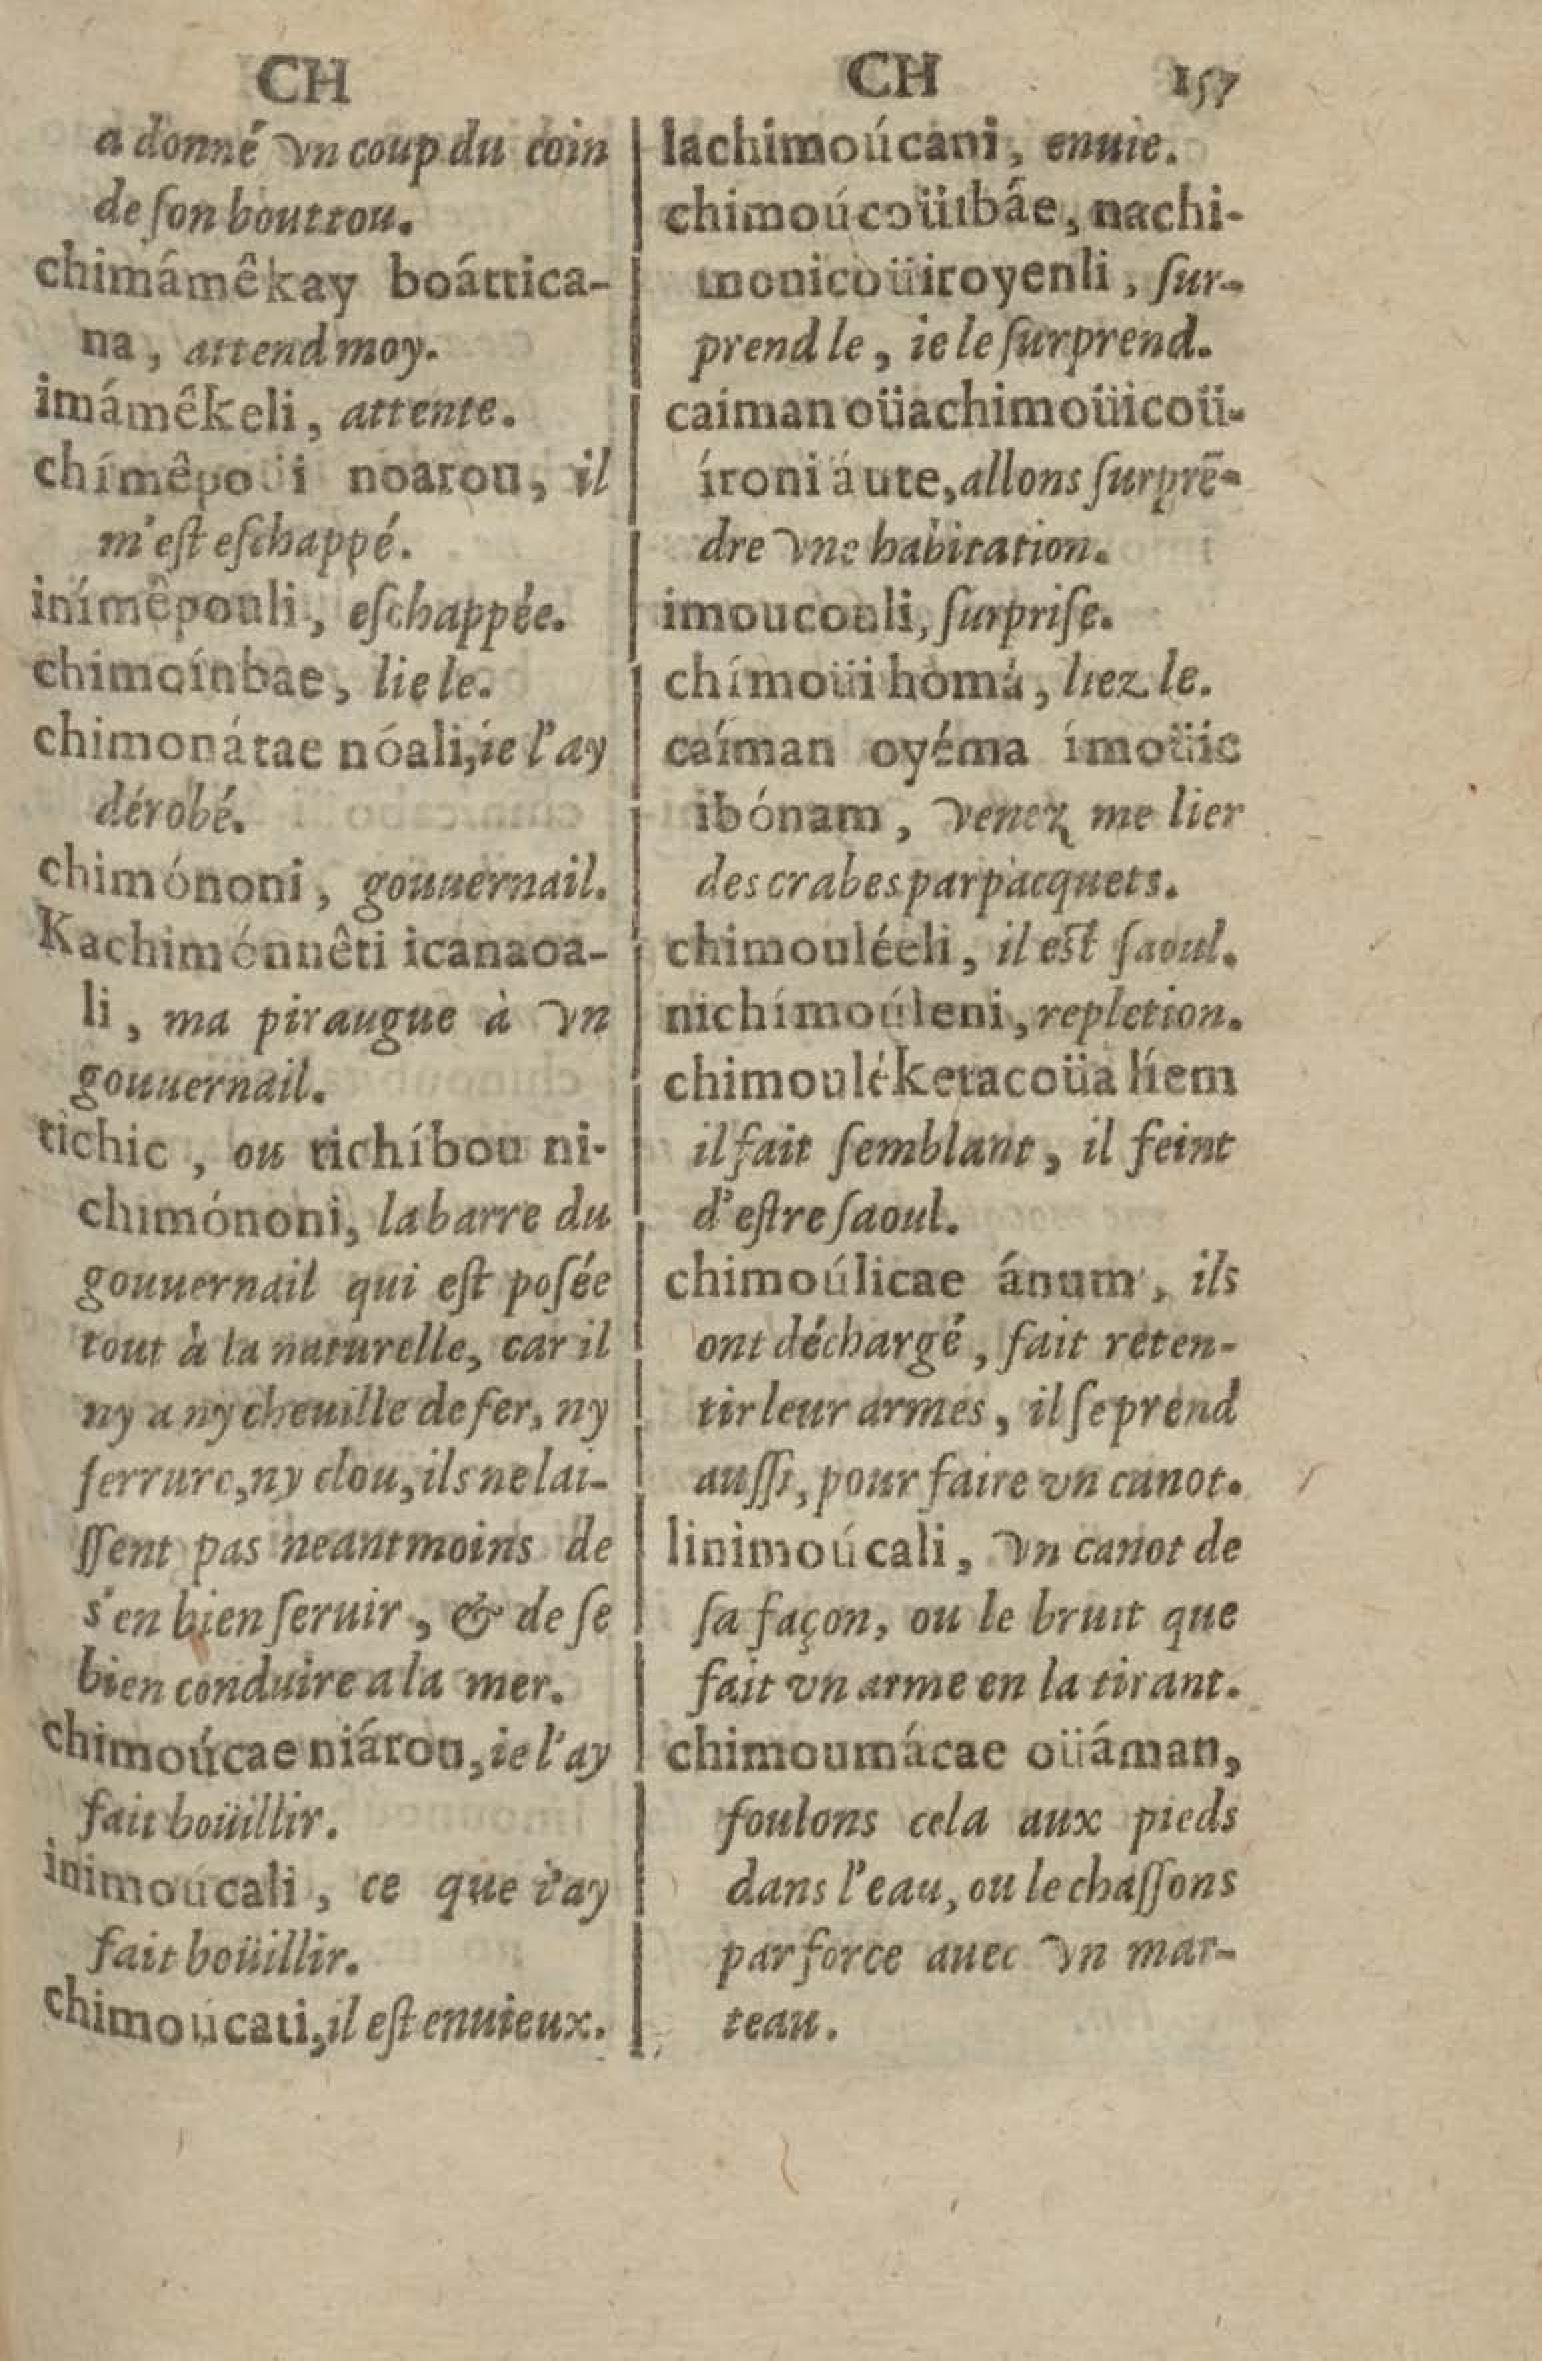 CH
a donné vn coup du coin
de ſon bouttou.
chimámêkay boáttica-
na, attend moy.
imámêkeli, attente.
noarou, il
m'eſt eſchappé.
inímêpouli, eſchappée.
chimoínbae, lie le.
chimonátae nóali, ie l'ay
dérobé.
chimónoni, gouuernail.
Kachimónnêti icanaoa-
li, ma piraugue à vn
gouuernail.
tichic, ou tichíbou ni-
chimónoni, la barre du
gouuernail qui eſt poſée
tout à la naturelle, car il
ny a ny cheuille de fer, ny
ferrure, ny clou, ils ne lai-
ſſent pas neantmoins de
s'en bien ſeruir, & de ſe
bien conduire a la mer.
chimoúcae niárou, ie l'ay
fait boüillir.
inimoúcali, ce que i'ay
fait boüillir.
chimoúcati, il eſt enuieux.
CH 157
lachimoúcani, enuie.
chimoúcoüibáe, nachi-
monicoüiroyenli, ſur-
prend le, ie le ſurprend.
caiman oüachimoüicoü-
íroni áute, allons ſurprē-
dre vne habitation.
imoucouli, ſurpriſe.
chímoüi homá, liez le.
caíman oyéma ímoüic
ibónam, venez me lier
des crabes par pacquets.
chimouléeli, il eſt ſaoul.
nichímoúleni, repletion.
chimouléketacoüa líem
il fait ſemblant, il feint
d'eſtre ſaoul.
chimoúlicae ánum, ils
ont déchargé, fait reten-
tir leur armes, il ſe prend
auſſi, pour faire vn canot.
linimoúcali, vn canot de
ſa façon, ou le bruit que
fait vn arme en la tirant.
chimoumácae oüáman,
foulons cela aux pieds
dans l'eau, ou le chaſſons
par force auec vn mar-
teau.